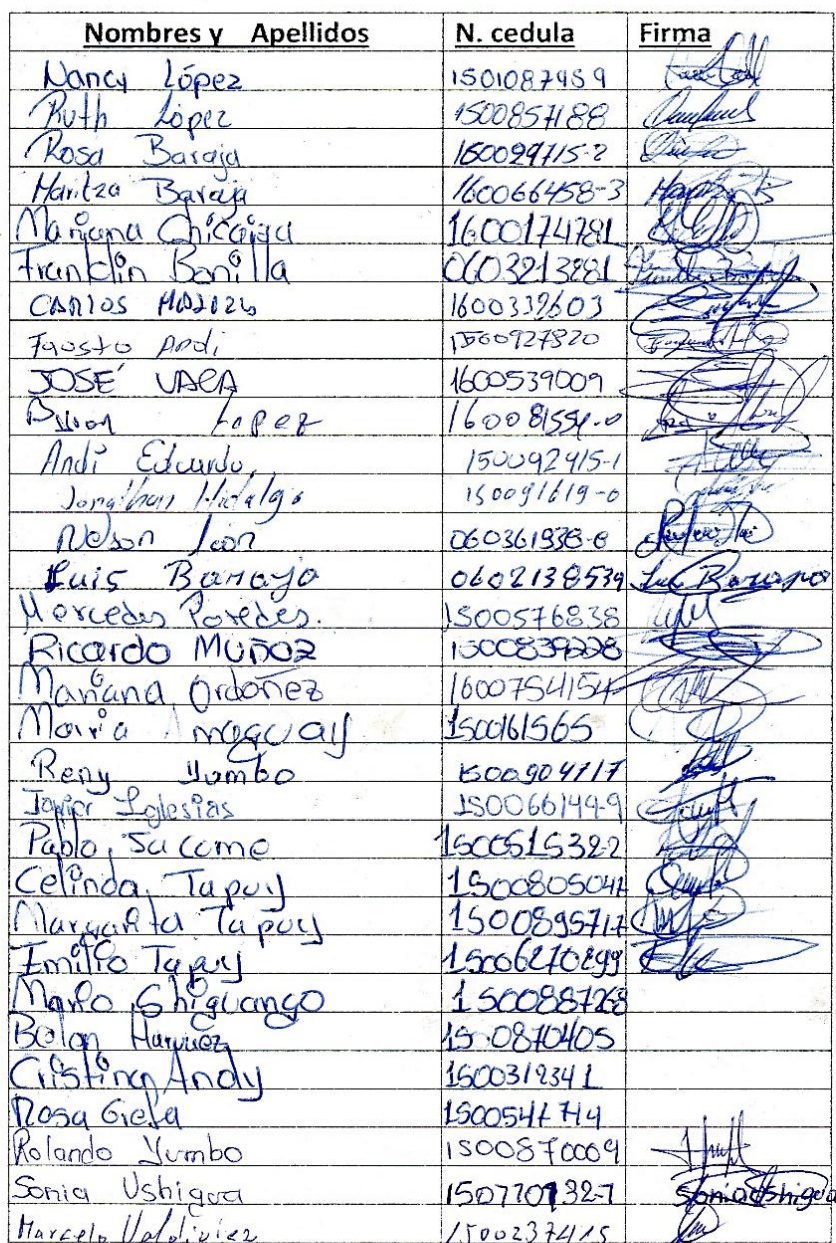 Nombres y Apellidos N. cedula Firma
Nancy López 1501087959
Ruth López 1500857188
Rosa Baraja 160029715-2
Maritza Baraja 160066458-3
Mariana Chicaiga 1600174781
Franklin Bonilla 0603213281
CARLOS 1600332603
Fausto Andi 1560927820
JOSÉ VACA 1600539009
Byron Lopez
Andi Eduardo 150092415-1
Jonathan Hidalgo 150091619-0
Nelson León 060361938-8
Luis Barajo 0602138539
Mercedes Paredes. 1500576838
Ricardo MUÑOZ
Mariana Ordoñez 1600754154
Maria Amaguay 150161565
Reny Yumbo 1500904717
Javier Iglesias 150066144-9
Pablo 150051532-2
Celinda Tapuy 1500805047
Margarita Tapuy 150089571-7
Emilio Tapuy
Mario Shiguango 1500887268
150870405
Cristina Andy 1500312341
Rosa Grefa
Rolando Yumbo 1500870009
Sonia Ushigua 150770132-7 Sonia Ushigua
Marcelo 1500237415